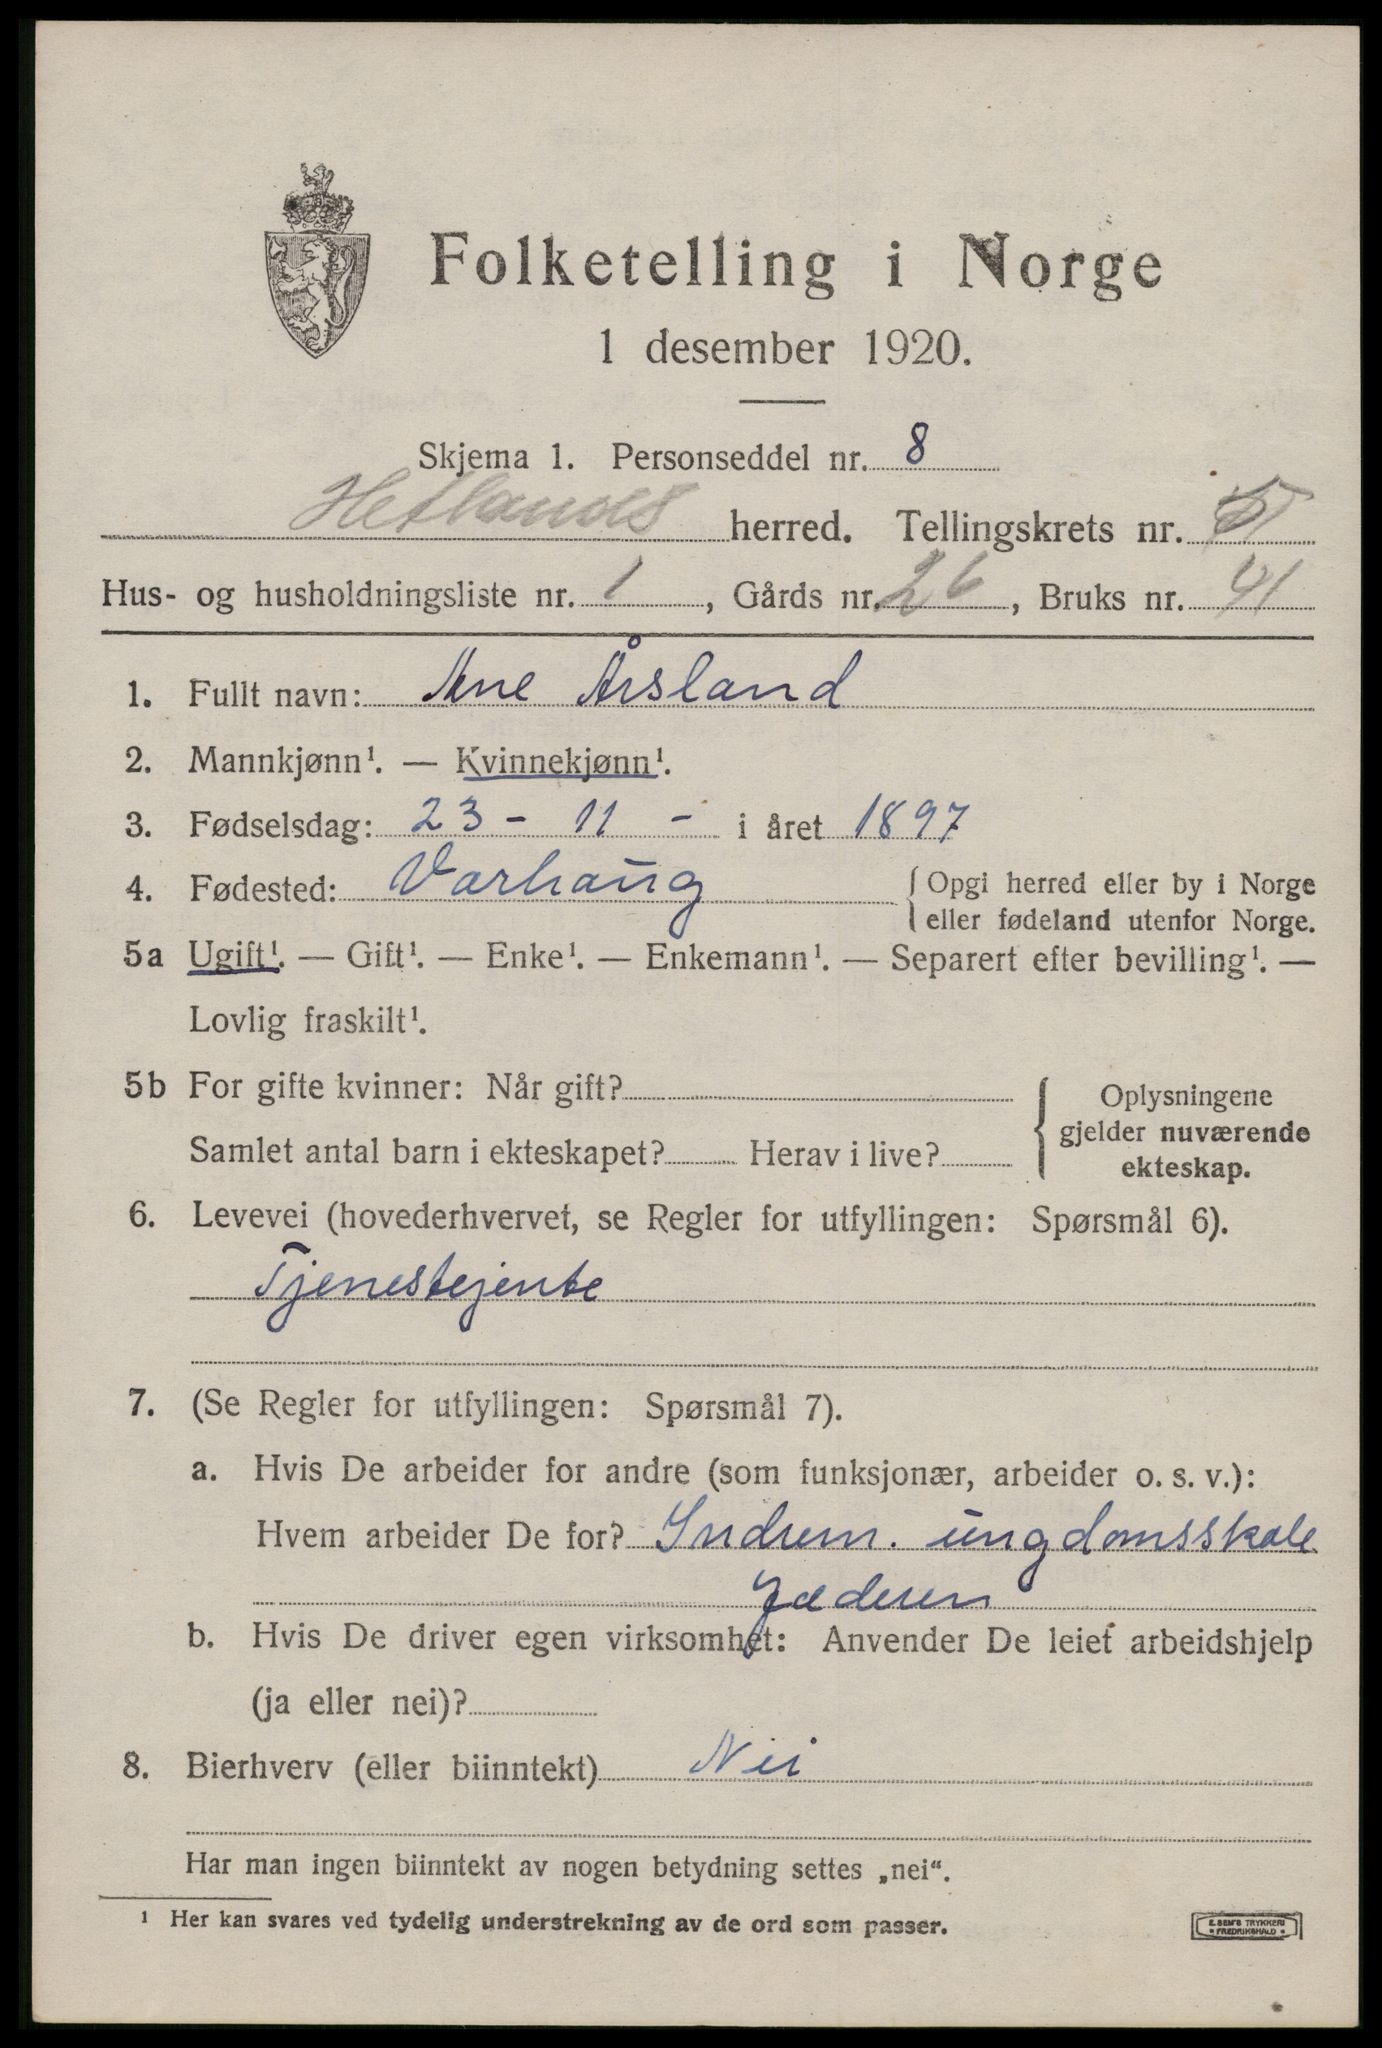 Folketelling i Norge
1 desember 1920.
Skjema 1. Personseddel nr. 8
Hetlands herred. Tellingskrets nr.
Hus- og husholdningsliste nr. 1, Gårds nr. 26, Bruks nr. 41
1. Fullt navn: Ane Årsland
2. Mannkjønn¹. — Kvinnekjønn¹.
3. Fødselsdag: 23 - 11 - i året 1897
4. Fødested: Varhaug
{ Opgi herred eller by i Norge
eller fødeland utenfor Norge.
5a Ugift¹. — Gift¹. — Enke¹. — Enkemann¹. — Separert efter bevilling¹. —
Lovlig fraskilt¹.
5b For gifte kvinner: Når gift?
Samlet antal barn i ekteskapet? Herav i live?
{ Oplysningene
gjelder nuværende
ekteskap.
6. Levevei (hovederhvervet, se Regler for utfyllingen: Spørsmål 6).
Tjenestejente
7. (Se Regler for utfyllingen: Spørsmål 7).
a. Hvis De arbeider for andre (som funksjonær, arbeider o. s. v.):
Hvem arbeider De for? Indrem. ungdomsskole
Jæderen
b. Hvis De driver egen virksomhet: Anvender De leiet arbeidshjelp
(ja eller nei)?
8. Bierhverv (eller biinntekt) Nei
Har man ingen biinntekt av nogen betydning settes „nei“.
¹ Her kan svares ved tydelig understrekning av de ord som passer.
E. SEM'S TRYKKERI
* FREDRIKSHALD *